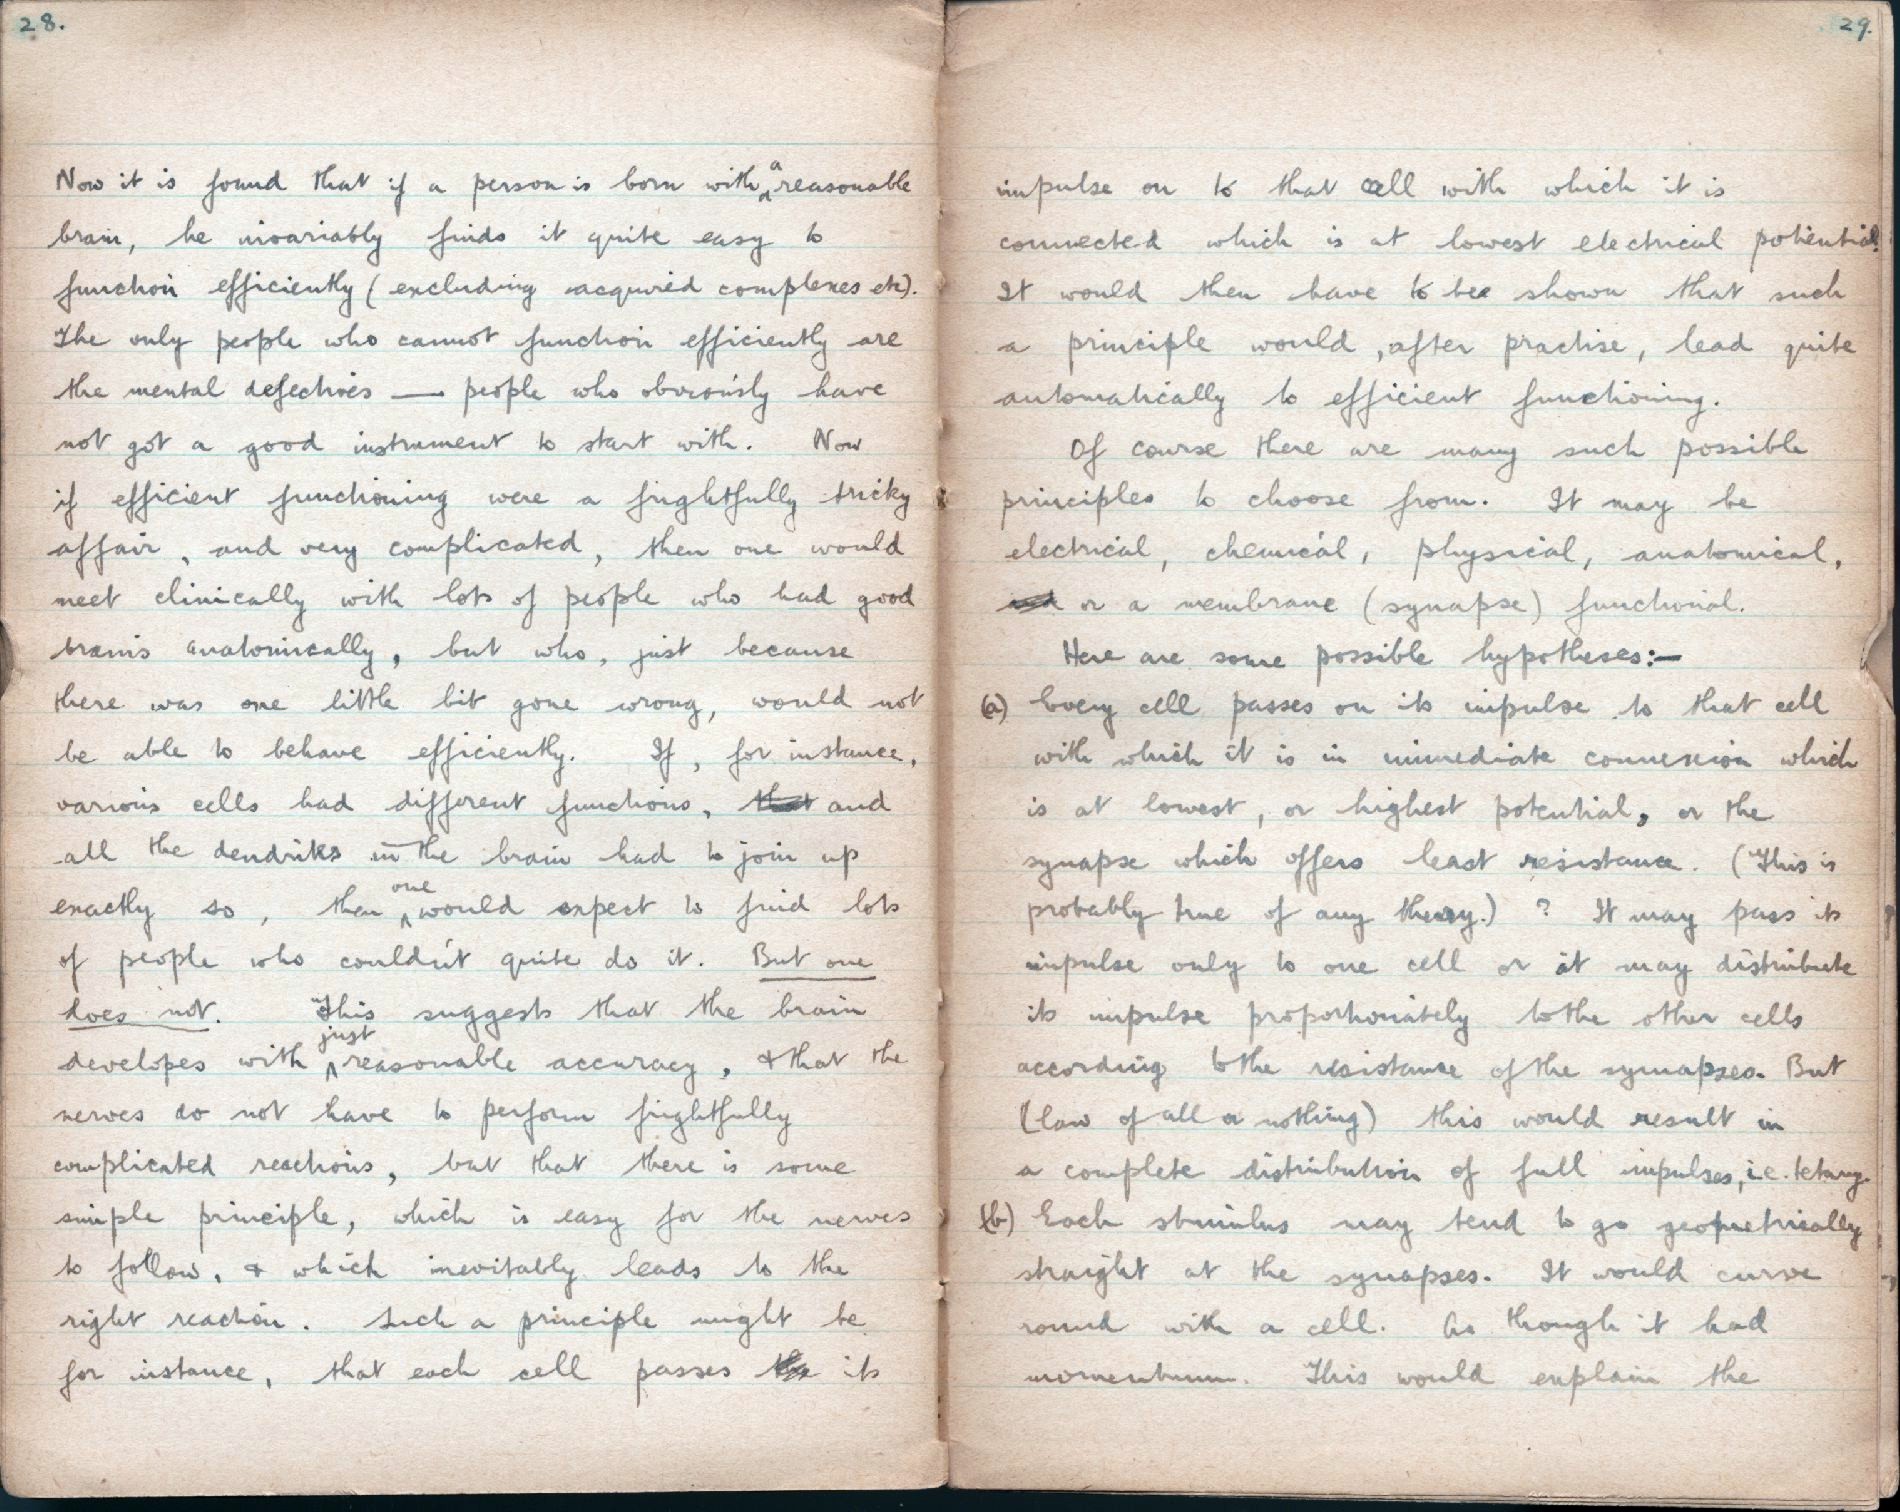 28.
Now it is found that if a person is born with a reasonable
brain, he invariably finds it quite easy to
function efficiently (excluding acquired complexes etc).
The only people who cannot function efficiently are
the mental defectives — people who obviously have
not got a good instrument to start with. Now
if efficient functioning were a frightfully tricky
affair, and very complicated, then one would
meet clinically with lots of people who had good
brains anatomically, but who, just because
there was one little bit gone wrong, would not
be able to behave efficiently. If, for instance,
various cells had different functions, that and
all the dendrites in the brain had to join up
exactly so, then one would expect to find lots
of people who couldn't quite do it. But one
does not. This suggests that the brain
developes with just reasonable accuracy, & that the
nerves do not have to perform frightfully
complicated reactions, but that there is some
simple principle, which is easy for the nerves
to follow, & which inevitably leads to the
right reaction. Such a principle might be
for instance, that each cell passes the its
29.
impulse on to that cell with which it is
connected which is at lowest electrical potential.
It would then have to be shown that such
a principle would, after practise, lead quite
automatically to efficient functioning.
Of course there are many such possible
principles to choose from. It may be
electrical, chemical, physical, anatomical,
or a membrane (synapse) functional.
Here are some possible hypotheses:—
(a) Every cell passes on its impulse to that cell
with which it is in immediate connexion which
is at lowest, or highest potential, or the
synapse which offers least resistance. (This is
probably true of any theory.) ? It may pass its
impulse only to one cell or it may distribute
its impulse proportionately to the other cells
according to the resistance of the synapses. But
(law of all or nothing) this would result in
a complete distribution of full impulses, i.e. tetany.
(b) Each stimulus may tend to go geometrically
straight at the synapses. It would curve
round with a cell. As though it had
momentum. This would explain the